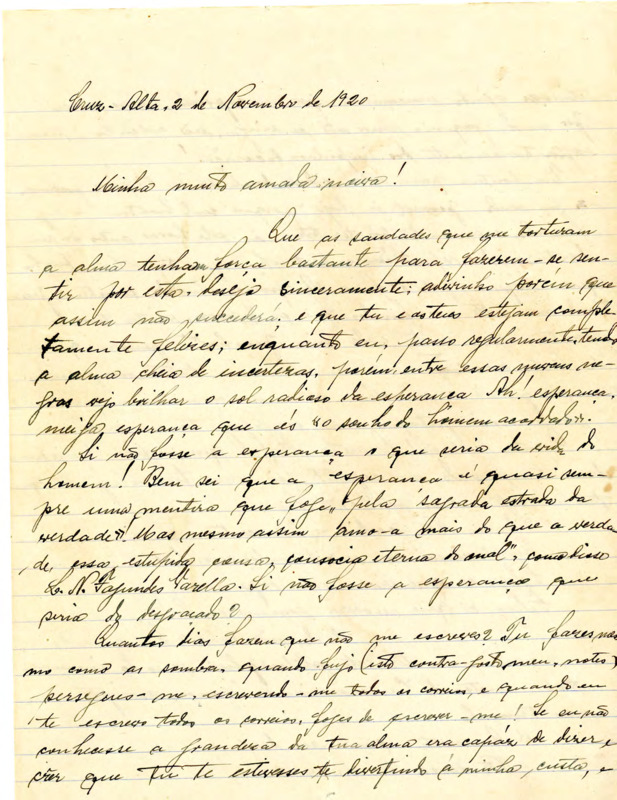 Cruz-Alta, 2 de Novembro de 1920
Minha muito amada noiva!
Que as saudades que me torturam
a alma tenham força bastante para fazerem-se sen-
tir por esta, desejo sinceramente; adivinho porém que
assim não succederá, e que tu e os teus estejam comple-
tamente felizes; enquanto eu, passo regularmente, tendo
a alma cheia de incertezas, porém, entre essas nuvens ne-
gras vejo brilhar o sol radioso da esperança Ah! esperança,
meiga esperança que és "o sonho do homem acordado".
Si não fosse a esperança o que seria da vida do
homem! Bem sei que a "esperança é quasi sem-
pre uma mentira que foge" pela "sagrada estrada da
verdade". Mas mesmo assim amo-a mais do que a verda-
de, essa estupida cousa, consocia eterna do mal", como disse
L. N. Fagundes Varella. Si não fosse a esperança que
seria do desgraçado?
Quantos dias fazem que não me escreves? Tu fazes mes-
mo como as sombra, quando fujo (isto contra-gosto meu, notes)
persegues-me, escrevendo-me todos os correios, e quando eu
te escrevo todos os correios, foges de escrever-me! Se eu não
conhecesse a grandeza da tua alma era capáz de dizer, e
crêr que tu te estivesses divertindo á minha custa, e